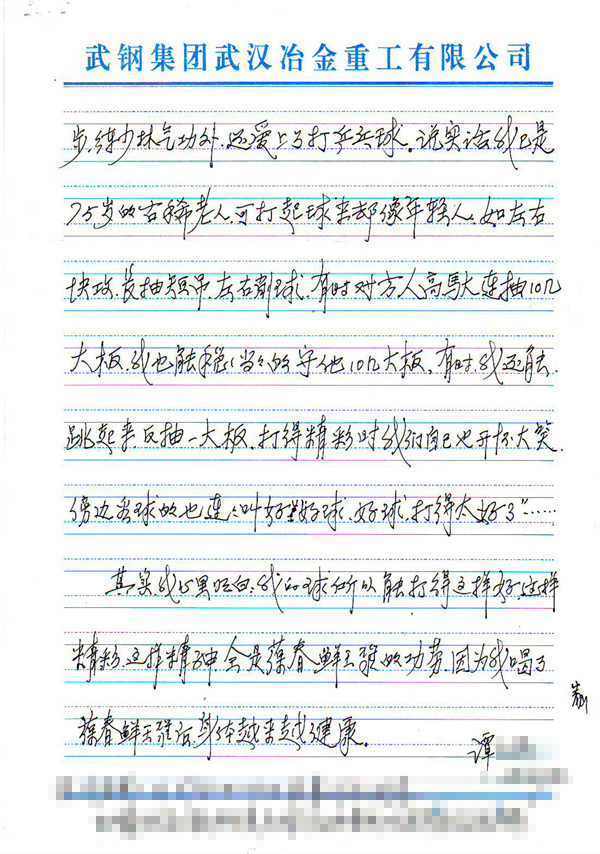 武钢集团武汉冶金重工有限公司
步、练少林气功外,还爱上了打乒乓球。说实话我已是
75岁的古稀老人,可打起球来却像年轻人,如左右
快攻、长抽短吊、左右削球,有时对方人高马大连抽10几
大板,我也能稳稳当当的守他10几大板,有时我还能
跳起来反抽一大板,打得精彩时我们自己也开怀大笑
傍边看球的也连连叫好"好球、好球、打得太好了"……
其实我心里明白:我的球所以能打得这样好,这样
精彩,这样精神全是葆春鲜王浆的功劳,因为我喝了
葆春鲜王浆后,身体越来越健康。
谭